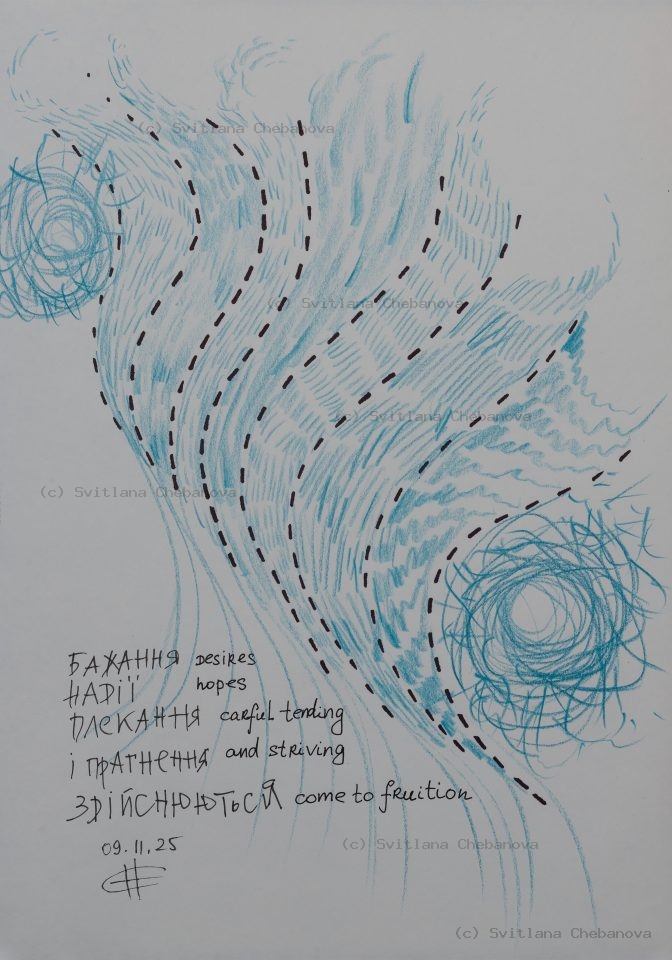 (c) Svitlana Chebanova
(c) Svitlana Chebanova
(c) Svitlana Chebanova
(c) Svitlana Chebanova
БАЖАННЯ desires
НАДІЇ hopes
ПЛЕКАННЯ careful tending
і ПРАГНЕННЯ and striving
ЗДІЙСНЮЮТЬСЯ come to fruition
09.11.25
(c) Svitlana Chebanova
(c) Svitlana Chebanova